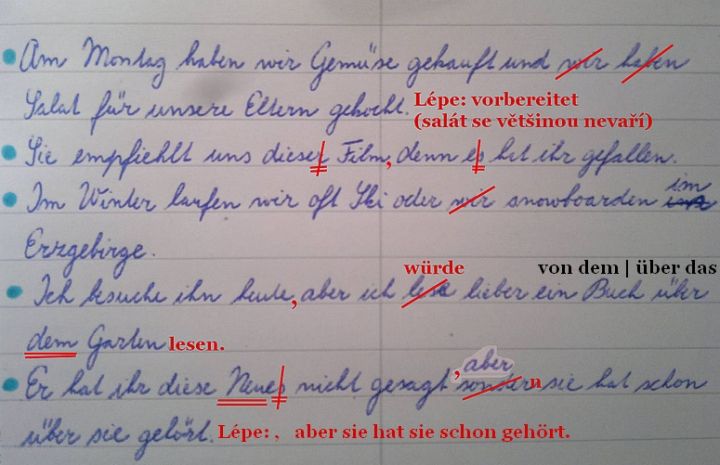 Am Montag haben wir Gemüse gekauft und wir haben
Salat für unsere Eltern gekocht. Lépe: vorbereitet
(salát se většinou nevaří)
Sie empfiehlt uns dieser Film, denn es hat ihr gefallen.
Im Winter laufen wir oft Ski oder wir snowboarden im
Erzgebirge.
würde von dem | über das
Ich besuche ihn heute, aber ich lese lieber ein Buch über
dem Garten lesen.
, aber
Er hat ihr diese Neues nicht gesagt sondern sie hat schon
über sie gehört. Lépe: , aber sie hat sie schon gehört.